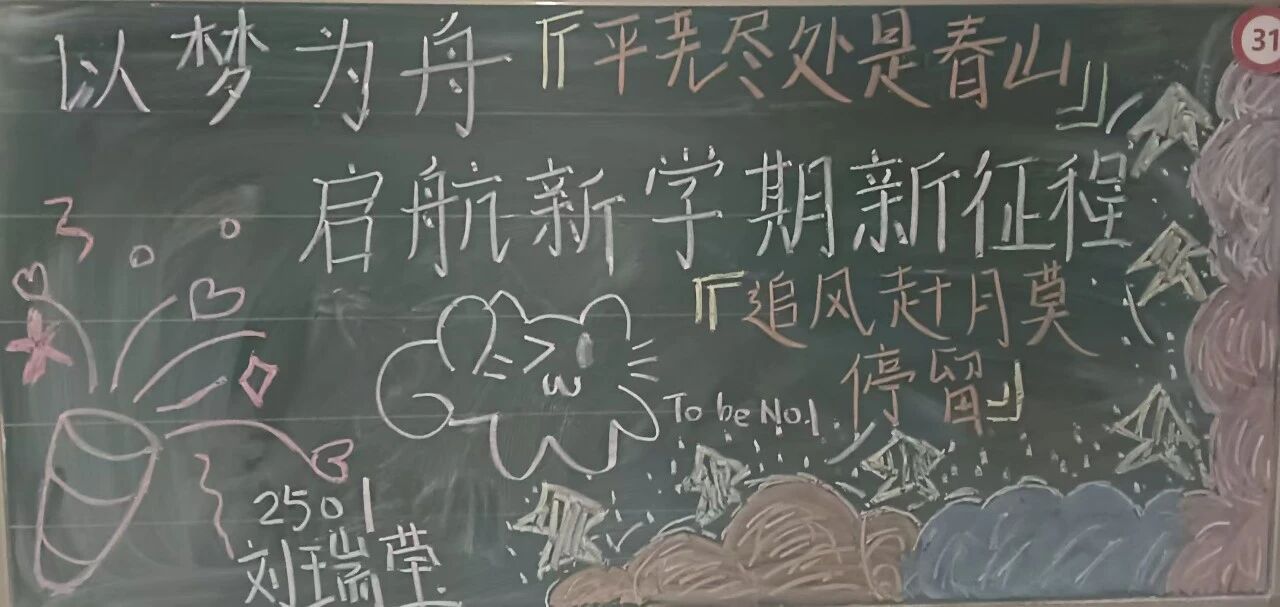 以梦为舟『平芜尽处是春山』
31
启航新学期新征程
『追风赶月莫
停留』
To be No.1
2501
刘瑞莹